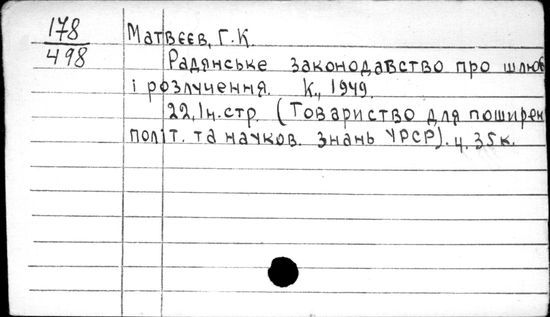 178
498
Матвєєв, Г. К.
Радянське законодавство про шлюб
і розлучення. К., 1949.
22, 1н. стр. (Товариство для поширен
політ. та науков. знань УРСР). ц. 35 к.